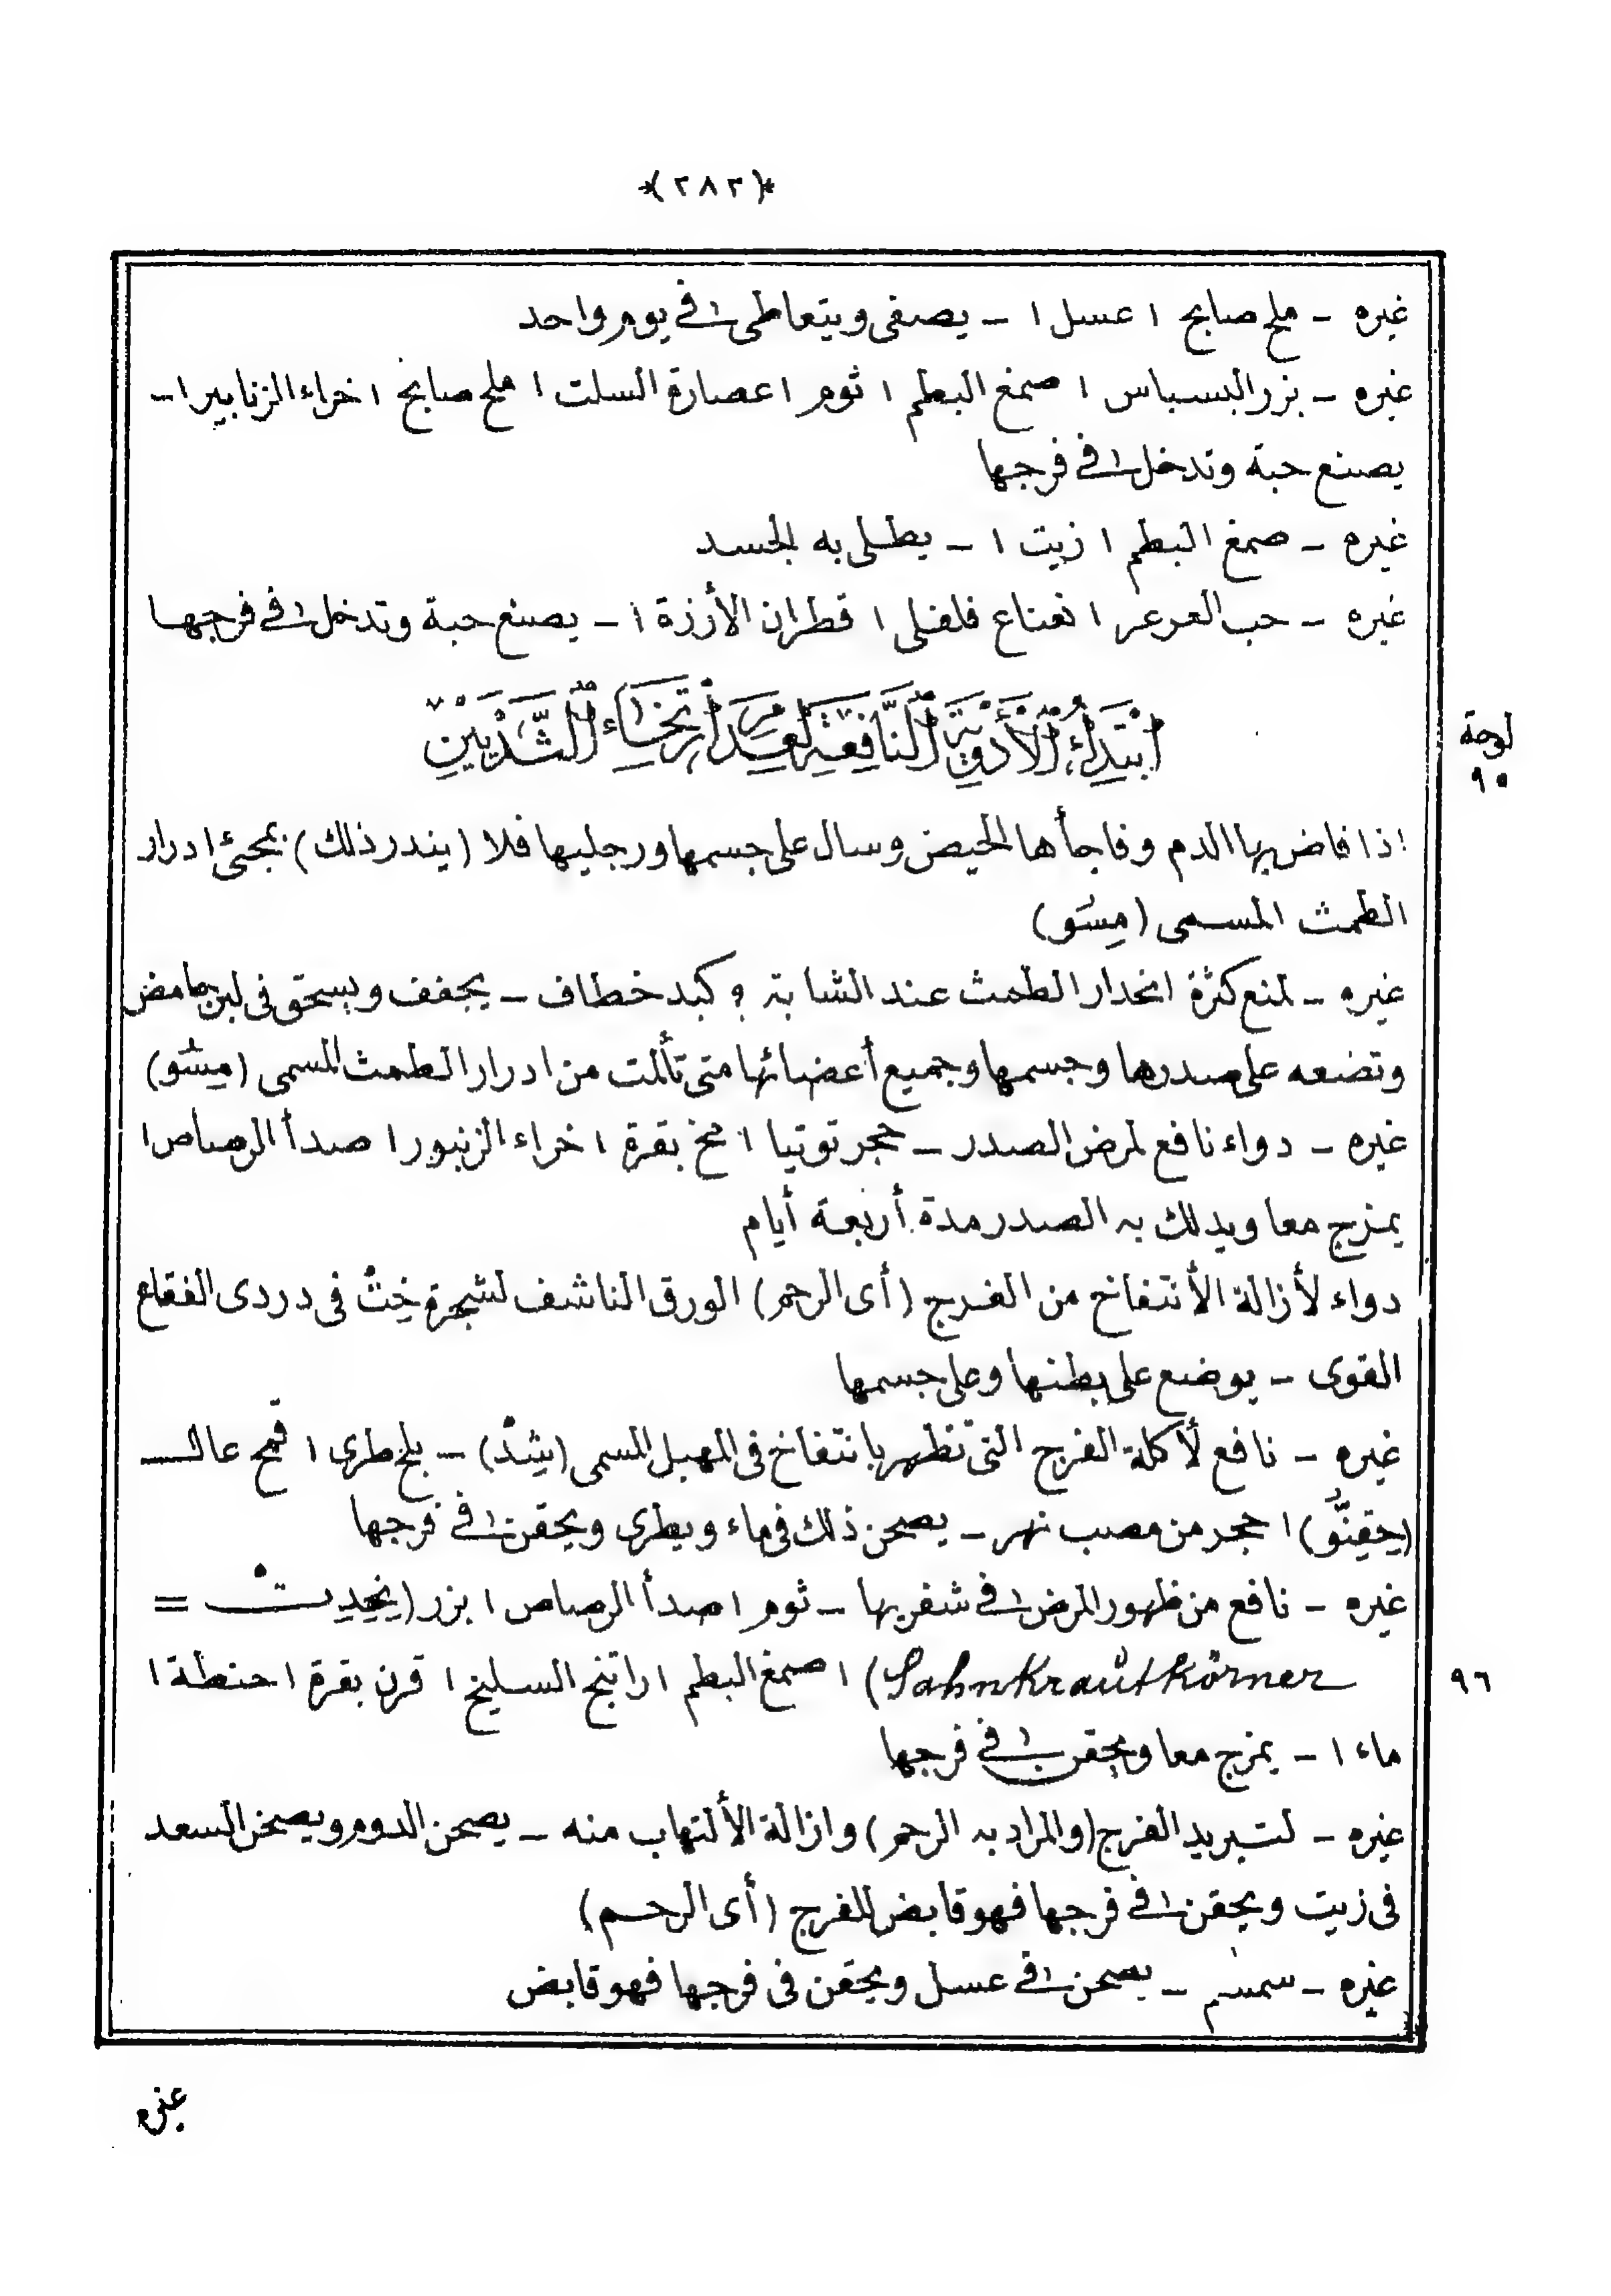 *(٢٨٢)*
غيره – ملح صابح ١ عسل ١ – يصفى ويتعاطى ١ فى يوم واحد
غيره – بزر البسباس ١ صمغ البطم ١ ثوم ١ عصارة السلت ١ ملح صابح ١ خراء الزنابير ١ –
يصنع حبة وتدخل ١ فى فرجها
غيره – صمغ البطم ١ زيت ١ – يطلى به الجسد
غيره – حب العرعر ١ نعناع فلفلى ١ قطران الأرزة ١ – يصنع حبة وتدخل ١ فى فرجها
اِبْتِدَاءُ الْأَدْوِيَةِ النَّافِعَةِ لِعَدَمِ ارْتِخَاءِ الثَّدْيَيْنِ
لوحة
٩٥
اذا فاض بها الدم وفاجأها الحيض وسال على جسمها ورجليها فلا (يندر ذلك) بمجئ ادرار
الطمث المسمى (مِسُو)
غيره – لمنع كثرة انحدار الطمث عند الشابة ؟ كبد خطاف – يجفف ويسحق فى لبن حامض
وتضعه على صدرها وجسمها وجميع أعضائها متى تألمت من ادرار الطمث المسمى (مِسُو)
غيره – دواء نافع لمرض الصدر – حجر توتيا ١ مخ بقرة ١ خراء الزنبور ١ صدأ الرصاص ١
يمزج معا ويدلك به الصدر مدة أربعة أيام
دواء لأزالة الأنتفاخ من الفرج (أى الرحم) الورق الناشف لشجرة خِتْ فى دردى الفقاع
القوى – يوضع على بطنها وعلى جسمها
غيره – نافع لأكلة الفرج التى تظهر بانتفاخ فى المهبل المسمى – بلح طرى ١ قمح عال
١ حجر من مصب نهر – يصحن ذلك فى ماء ويطرى ويحقن ١ فى فرجها
غيره – نافع من ظهور المرض ١ فى شفريها – ثوم ١ صدأ الرصاص ١ بزر =
Sahnkrautkörner) ١ صمغ البطم ١ راتنج السليخ ١ قرن بقرة ١ حنطة ١
٩٦
ماء ١ – يمزج معا ويحقن ١ فى فرجها
غيره – لتبريد الفرج (والمراد به الرحم) وازالة الألتهاب منه – يصحن الدوم ويصحن السعد
فى زيت ويحقن ١ فى فرجها فهو قابض للفرج (أى الرحم)
غيره – سمسم – يصحن ١ فى عسل ويحقن فى فرجها فهو قابض
غيره